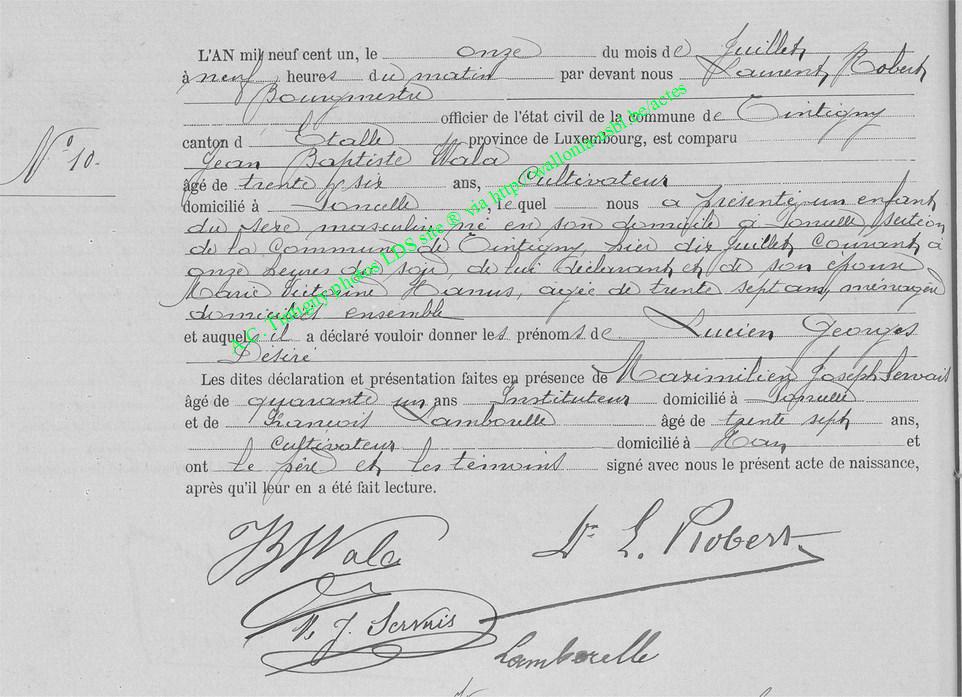 L'AN mil neuf cent un, le onze du mois de Juillet
à neuf heures du matin par devant nous Laurent Robert
Bourgmestre
officier de l'état civil de la commune de Tintigny
canton d Etalle province de Luxembourg, est comparu
N° 10.
Jean Baptiste Wala
âgé de trente six ans, Cultivateur
domicilié à Poncelle, lequel nous a présenté un enfant
du sexe masculin né en son domicile à Poncelle, section
de la Commune de Tintigny, hier dix Juillet Courant à
onze heures du soir, de lui déclarant et de son épouse
Marie Victorine Hanus, agée de trente sept ans, ménagère
domiciliés ensemble
et auquel il a déclaré vouloir donner les prénoms de Lucien Georges
Désiré
Les dites déclaration et présentation faites en présence de Maximilien Joseph Servais
âgé de quarante un ans Instituteur domicilié à Poncelle
et de François Lamborelle âgé de trente sept ans,
Cultivateur domicilié à Han et
ont le père et les témoins signé avec nous le présent acte de naissance,
après qu'il leur en a été fait lecture.
JBWala Dr L. Robert
M J. Servais
Lamborelle
A.C. Tintigny photos LDS site ® via http://walloniansbl.be/actes